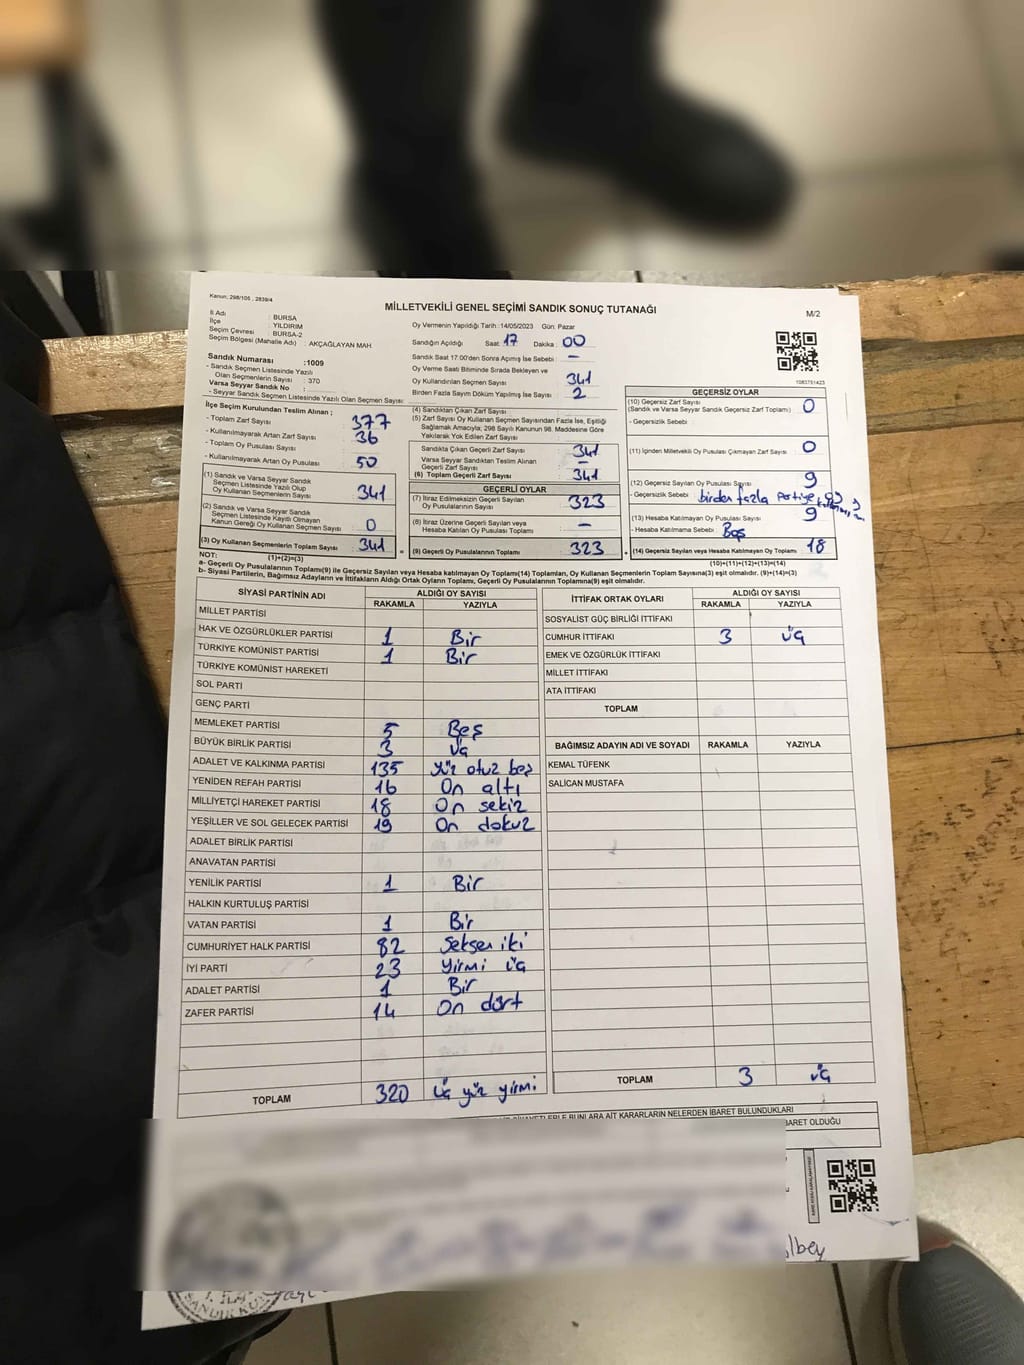 Kanun: 298/105 , 2839/4
MİLLETVEKİLİ GENEL SEÇİMİ SANDIK SONUÇ TUTANAĞI
M/2
İl Adı : BURSA
İlçe : YILDIRIM
Seçim Çevresi : BURSA-2
Seçim Bölgesi (Mahalle Adı) : AKÇAĞLAYAN MAH.
Sandık Numarası :1009
- Sandık Seçmen Listesinde Yazılı
Olan Seçmenlerin Sayısı : 370
Varsa Seyyar Sandık No :
- Seyyar Sandık Seçmen Listesinde Yazılı Olan Seçmen Sayısı:
Oy Vermenin Yapıldığı Tarih :14/05/2023 Gün: Pazar
Sandığın Açıldığı Saat 17 Dakika : 00
Sandık Saat 17:00'den Sonra Açımış İse Sebebi : –
Oy Verme Saati Bitiminde Sırada Bekleyen ve
Oy Kullandırılan Seçmen Sayısı 341
Birden Fazla Sayım Döküm Yapılmış İse Sayısı 2
1083751423
İlçe Seçim Kurulundan Teslim Alınan ;
- Toplam Zarf Sayısı : 377
- Kullanılmayarak Artan Zarf Sayısı : 36
- Toplam Oy Pusulası Sayısı :
- Kullanılmayarak Artan Oy Pusulası 50
(1) Sandık ve Varsa Seyyar Sandık
Seçmen Listesinde Yazılı Olup
Oy Kullanan Seçmenlerin Sayısı : 341
(2) Sandık ve Varsa Seyyar Sandık
Seçmen Listesinde Kayıtlı Olmayan
Kanun Gereği Oy Kullanan Seçmen Sayısı 0
(3) Oy Kullanan Seçmenlerin Toplam Sayısı 341
(1)+(2)=(3)
(4) Sandıktan Çıkan Zarf Sayısı
(5) Zarf Sayısı Oy Kullanan Seçmen Sayısından Fazla İse, Eşitliği
Sağlamak Amacıyla; 298 Sayılı Kanunun 98. Maddesine Göre
Yakılarak Yok Edilen Zarf Sayısı
Sandıkta Çıkan Geçerli Zarf 341
Varsa Seyyar Sandıktan Teslim Alınan
Geçerli Zarf Sayısı –
(6) Toplam Geçerli Zarf Sayısı 341
GEÇERLİ OYLAR
(7) İtiraz Edilmeksizin Geçerli Sayılan
Oy Pusulalarının Sayısı 323
(8) İtiraz Üzerine Geçerli Sayılan veya
Hesaba Katılan Oy Pusulası Toplamı –
= (9) Geçerli Oy Pusulalarının Toplamı 323
GEÇERSİZ OYLAR
(10) Geçersiz Zarf Sayısı
(Sandık ve Varsa Seyyar Sandık Geçersiz Zarf Toplamı) 0
- Geçersizlik Sebebi
(11) İçinden Milletvekili Oy Pusulası Çıkmayan Zarf Sayısı 0
(12) Geçersiz Sayılan Oy Pusulası Sayısı 9
- Geçersizlik Sebebi birden fazla Partiye oy
(13) Hesaba Katılmayan Oy Pusulası Sayısı 9
- Hesaba Katılmama Sebebi Boş
+ (14) Geçersiz Sayılan veya Hesaba Katılmayan Oy Toplamı 18
(10)+(11)+(12)+(13)=(14)
NOT:
a- Geçerli Oy Pusulalarının Toplamı(9) ile Geçersiz Sayılan veya Hesaba Katılmayan Oy Toplamı(14) Toplamları, Oy Kullanan Seçmenlerin Toplam Sayısına(3) eşit olmalıdır. (9)+(14)=(3)
b- Siyasi Partilerin, Bağımsız Adayların ve İttifakların Aldığı Ortak Oyların Toplamı, Geçerli Oy Pusulalarının Toplamına(9) eşit olmalıdır.
SİYASİ PARTİNİN ADI ALDIĞI OY SAYISI
RAKAMLA YAZIYLA
MİLLET PARTİSİ
HAK VE ÖZGÜRLÜKLER PARTİSİ 1 Bir
TÜRKİYE KOMÜNİST PARTİSİ 1 Bir
TÜRKİYE KOMÜNİST HAREKETİ
SOL PARTİ
GENÇ PARTİ
MEMLEKET PARTİSİ 5 Beş
BÜYÜK BİRLİK PARTİSİ 3 üç
ADALET VE KALKINMA PARTİSİ 135 Yüz otuz beş
YENİDEN REFAH PARTİSİ 16 On altı
MİLLİYETÇİ HAREKET PARTİSİ 18 On sekiz
YEŞİLLER VE SOL GELECEK PARTİSİ 19 On dokuz
ADALET BİRLİK PARTİSİ
ANAVATAN PARTİSİ
YENİLİK PARTİSİ 1 Bir
HALKIN KURTULUŞ PARTİSİ
VATAN PARTİSİ 1 Bir
CUMHURİYET HALK PARTİSİ 82 Seksen iki
İYİ PARTİ 23 Yirmi üç
ADALET PARTİSİ 1 Bir
ZAFER PARTİSİ 14 On dört
TOPLAM 320 üç yüz yirmi
İTTİFAK ORTAK OYLARI ALDIĞI OY SAYISI
RAKAMLA YAZIYLA
SOSYALİST GÜÇ BİRLİĞİ İTTİFAKI
CUMHUR İTTİFAKI 3 üç
EMEK VE ÖZGÜRLÜK İTTİFAKI
MİLLET İTTİFAKI
ATA İTTİFAKI
TOPLAM
BAĞIMSIZ ADAYIN ADI VE SOYADI RAKAMLA YAZIYLA
KEMAL TÜFENK
SALİCAN MUSTAFA
TOPLAM 3 üç
BUNLARA AİT KARARLARIN NELERDEN İBARET BULUNDUKLARI